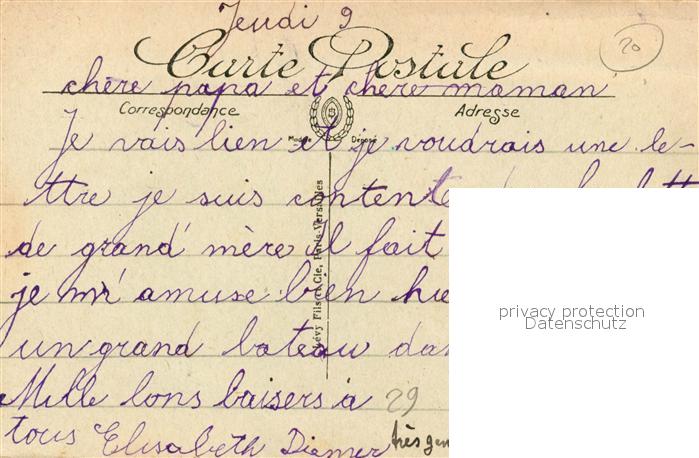 Jeudi 9
20
Carte Postale
chère papa et chere maman
Correspondance
Adresse
Je vais bien et je voudrais une le-
ttre je suis contente
de grand mère Il fait
je m'amuse bien
un grand bateau
Mille bons baisers à
29
tous Elisabeth
très
Lévy Fils et Cie, Paris-Versailles
privacy protection
Datenschutz